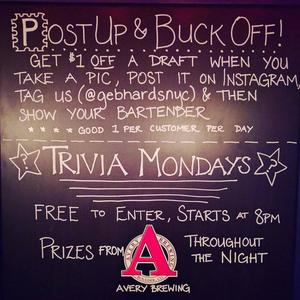 Post Up & Buck Off!
Get $1 off a draft when you
take a pic, post it on Instagram,
tag us (@gebhardsnyc) & then
show your bartender
**** Good 1 per customer per day
? Trivia Mondays ?
Free to Enter, Starts at 8pm
Prizes from A Throughout
the Night
Avery Brewing